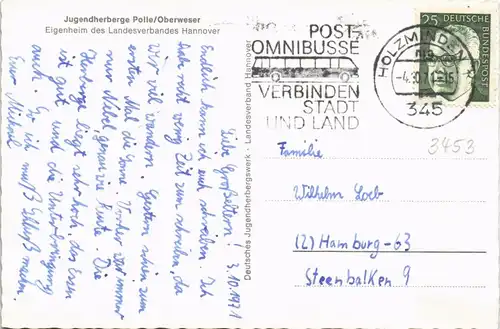 Jugendherberge Polle/Oberweser
Eigenheim des Landesverbandes Hannover
Liebe Großeltern! 3.10.1971
Endlich kann ich euch schreiben. Ich
habe nicht wenig Zeit zum schreiben, da
wir viel wandern. Gestern schien zum
ersten Mal die Sonne. Vorher war immer
nur Nebel, genau wie heute. Die
Herberge liegt sehr hoch, das Essen
ist gut und die Unterbringung
auch. So ich muß Schluß machen.
Euer Michael
Deutsches Jugendherbergswerk - Landesverband Hannover
POST
OMNIBUSSE
VERBINDEN
STADT
UND LAND
HOLZMINDEN
-4.10.71-15
345
25 DEUTSCHE
BUNDESPOST
3453
Familie
Wilhelm Loeb
(2) Hamburg-63
Steenbalken 9